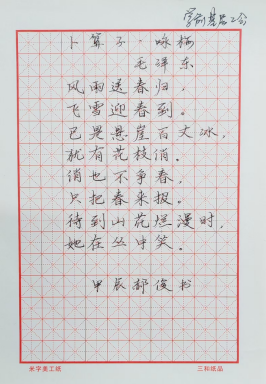 学前基名2分
卜算子·咏梅
毛泽东
风雨送春归，
飞雪迎春到。
已是悬崖百丈冰，
犹有花枝俏。
俏也不争春，
只把春来报。
待到山花烂漫时，
她在丛中笑。
甲辰郝俊书
米字美工纸
三和纸品